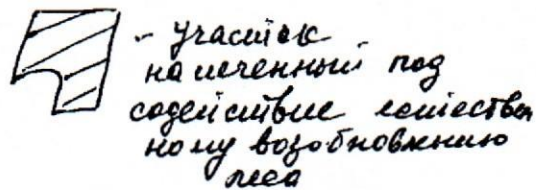 - участок
намеченный под
содействие естествен
ному возобновлению
леса